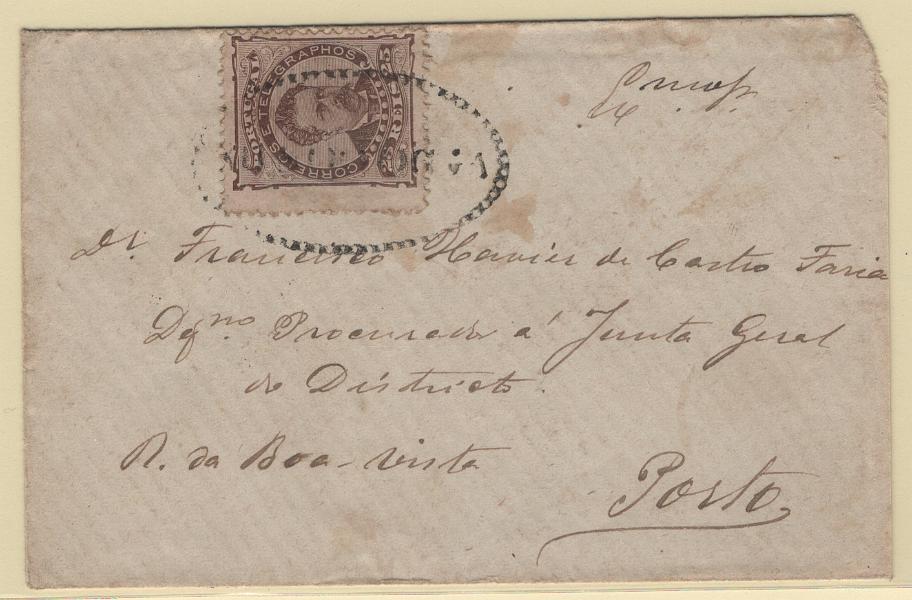 PORTUGAL
CORREIOS E TELEGRAPHOS
25 REIS 25
Exmo Sr
Dr. Francisco Xavier de Castro Faria
Dgno. Procurador á Junta Geral
do Districto.
R. da Boa-vista
Porto